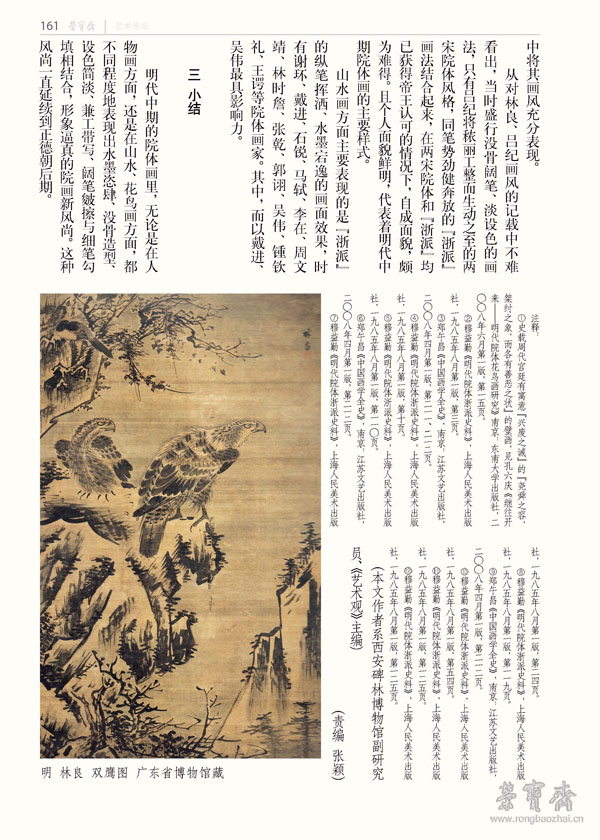 161 荣宝斋 艺术论坛
中将其画风充分表现。
从对林良、吕纪画风的记载中不难
看出，当时盛行没骨阔笔、淡设色的画
法，只有吕纪将秾丽工整而生动之至的两
宋院体风格，同笔势劲健奔放的『浙派』
画法结合起来，在两宋院体和『浙派』均
已获得帝王认可的情况下，自成面貌，颇
为难得。且个人面貌鲜明，代表着明代中
期院体画的主要样式。
山水画方面主要表现的是『浙派』
的纵笔挥洒、水墨宕逸的画面效果，时
有谢环、戴进、石锐、马轼、李在、周文
靖、林时詹、张乾、郭诩、吴伟、锺钦
礼、王谔等院体画家。其中，而以戴进、
吴伟最具影响力。
三 小结
明代中期的院体画里，无论是在人
物画方面，还是在山水、花鸟画方面，都
不同程度地表现出水墨恣肆、没骨造型、
设色简淡、兼工带写、阔笔皴擦与细笔勾
填相结合，形象逼真的院画新风尚。这种
风尚一直延续到正德朝后期。
注释：
①史载周代宫廷有寓意『兴废之诫』的『尧舜之容，
桀纣之象，而各有善恶之状』的壁画，见孔六庆《继往开
来——明代院体花鸟画研究》南京：东南大学出版社，二
〇〇八年六月第一版，第一五页。
②穆益勤《明代院体浙派史料》，上海人民美术出版
社，一九八五年八月第一版，第三页。
③郑午昌《中国画学全史》，南京：江苏文艺出版社，
二〇〇八年四月第一版，第二一一、二一二页。
④穆益勤《明代院体浙派史料》，上海人民美术出版
社，一九八五年八月第一版，第十页。
⑤穆益勤《明代院体浙派史料》，上海人民美术出版
社，一九八五年八月第一版，第二〇页。
⑥郑午昌《中国画学全史》，南京：江苏文艺出版社，
二〇〇八年四月第一版，第二一二页。
⑦穆益勤《明代院体浙派史料》，上海人民美术出版
社，一九八五年八月第一版，第二四页。
⑧穆益勤《明代院体浙派史料》，上海人民美术出版
社，一九八五年八月第一版，第一一九页。
⑨郑午昌《中国画学全史》，南京：江苏文艺出版社，
二〇〇八年四月第一版，第二一二页。
⑩穆益勤《明代院体浙派史料》，上海人民美术出版
社，一九八五年八月第一版，第五四页。
⑪穆益勤《明代院体浙派史料》，上海人民美术出版
社，一九八五年八月第一版，第二五页。
⑫穆益勤《明代院体浙派史料》，上海人民美术出版
社，一九八五年八月第一版，第一二五页。
（本文作者系西安碑林博物馆副研究
员、《艺术观》主编）
（责编 张颖）
明 林良 双鹰图 广东省博物馆藏
荣宝斋
www.rongbaozhai.cn